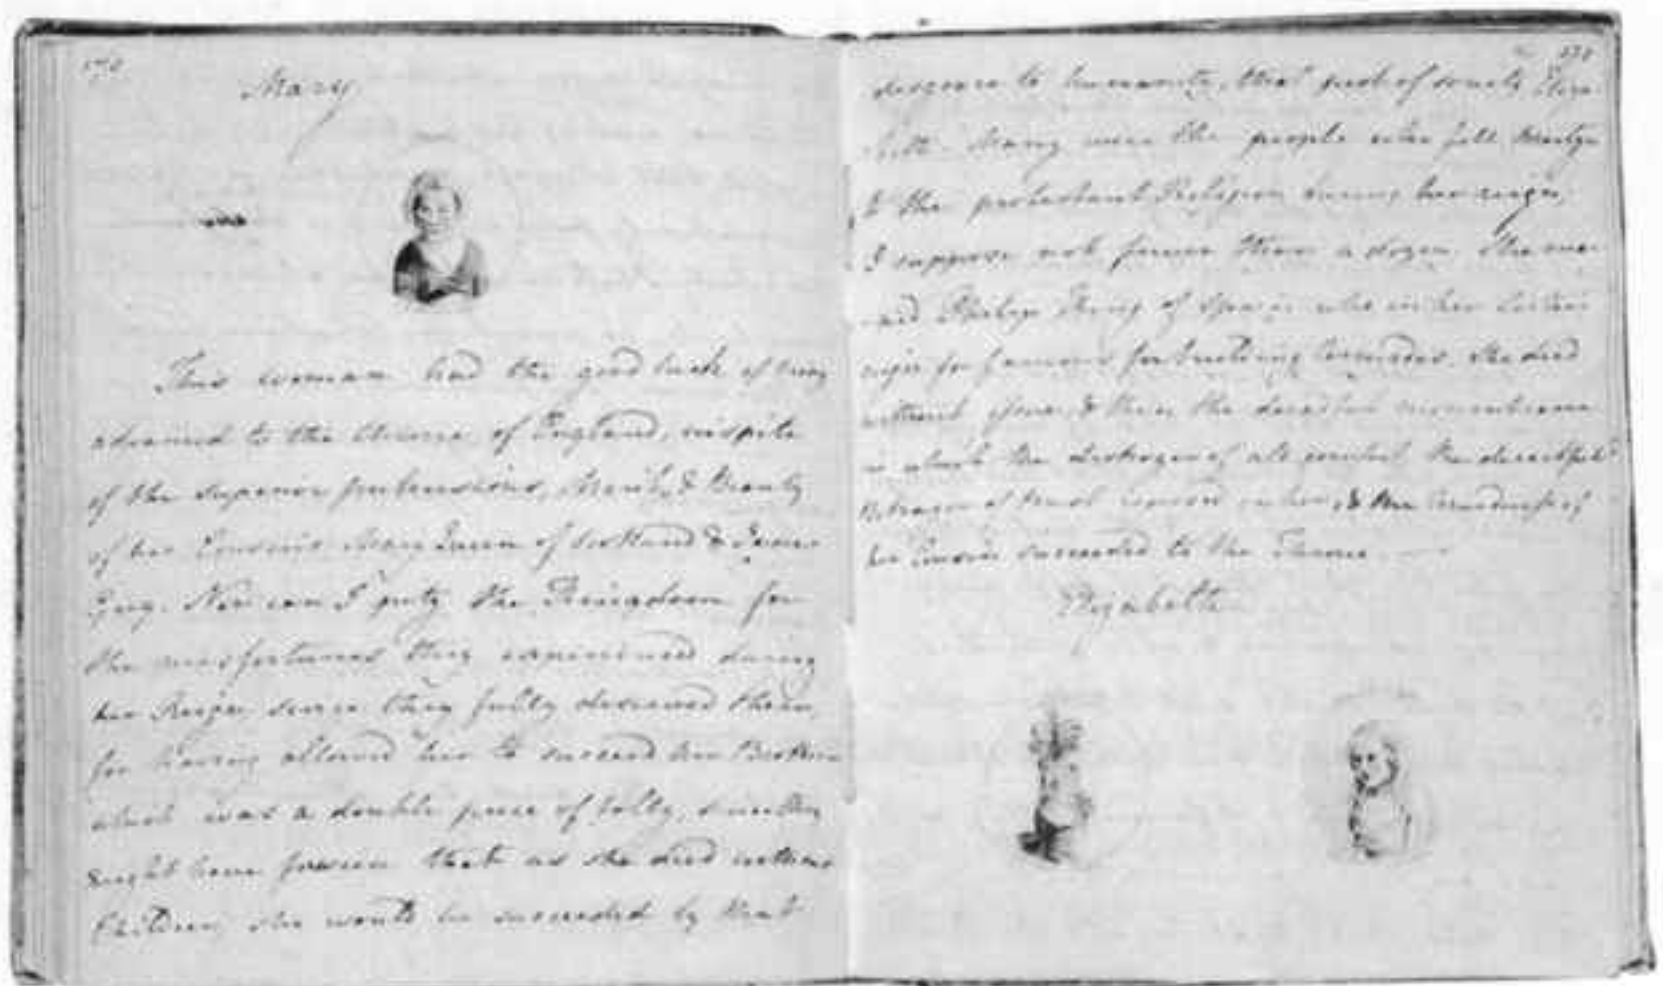 Mary
This woman had the good luck of being
advanced to the throne of England, inspite
of the superior pretensions, Merit, & Beauty
of her Cousins Mary Queen of Scotland & Jane
Grey. Nor can I pity the Kingdom for
the misfortunes they experienced during
her Reign, since they fully deserved them,
for having allowed her to succeed her Brother
which was a double peice of folly, since they
might have foreseen that as she died without
Children, she would be succeeded by that
disgrace to humanity, that pest of society Eliza-
beth. Many were the people who fell Martyrs
to the protestant Religion during her reign;
I suppose not fewer than a dozen. She mar-
-ried Philip King of Spain who in her Sister's
reign for famous for building Armadas. She died
without issue, & then the dreadful moment came
in which the destroyer of all comfort, the deceitful
Betrayer of trust reposed in her, & the Murderess of
her Cousin succeeded to the Throne.
Elizabeth